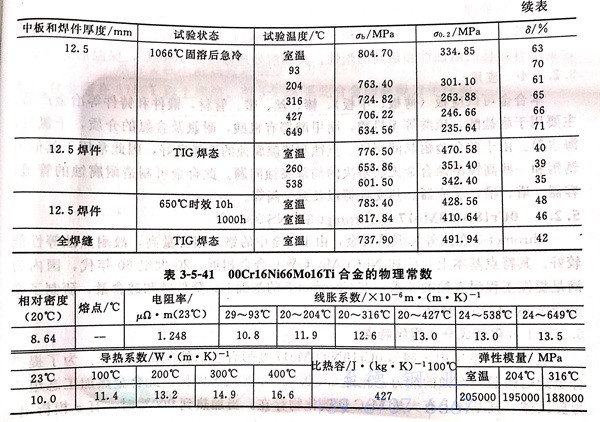 续表
中板和焊件厚度/mm 试验状态 试验温度/℃ σb/MPa σ0.2/MPa δ/%
12.5 1066℃固溶后急冷 室温 804.70 334.85 63
93 70
204 763.40 301.10 61
316 724.82 263.88 65
427 706.22 246.66 66
649 634.56 235.64 71
12.5 焊件 TIG 焊态 室温 776.50 470.58 40
260 653.86 351.40 39
538 601.50 342.40 35
12.5 焊件 650℃时效 10h 室温 783.40 428.56 48
1000h 室温 817.84 410.64 46
全焊缝 TIG 焊态 室温 737.90 491.94 42
表 3-5-41 00Cr16Ni66Mo16Ti 合金的物理常数
相对密度 熔点/℃ 电阻率/ 线胀系数/×10⁻⁶m·(m·K)⁻¹
(20℃) μΩ·m(23℃) 29～93℃ 20～204℃ 20～316℃ 20～427℃ 24～538℃ 24～649℃
8.64 — 1.248 10.8 11.9 12.6 13.0 13.0 13.5
导热系数/W·(m·K)⁻¹ 比热容/J·(kg·K)⁻¹100℃ 弹性模量/MPa
23℃ 100℃ 200℃ 300℃ 400℃ 室温 204℃ 316℃
10.0 11.4 13.2 14.9 16.6 427 205000 195000 188000